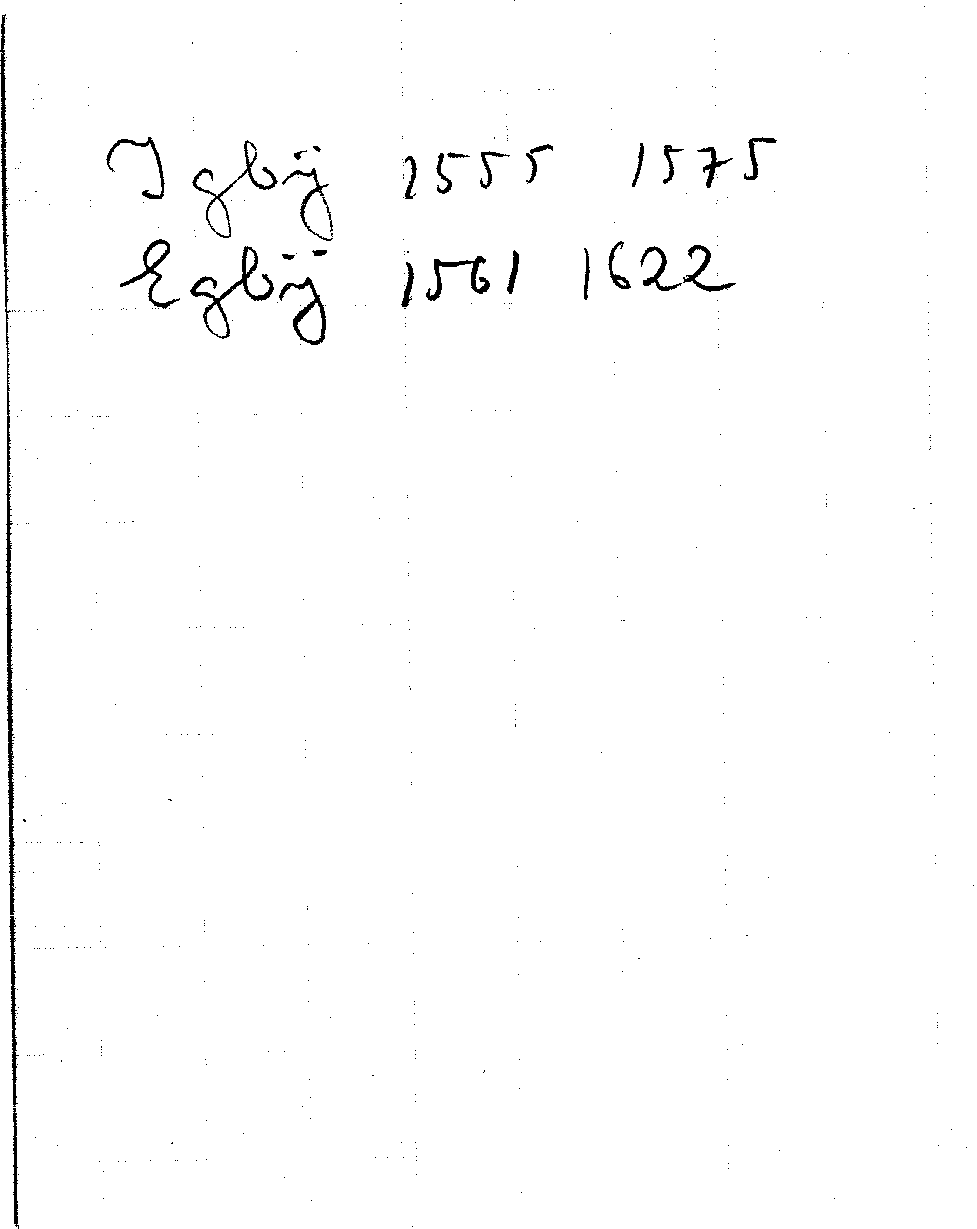 Igbÿ 1555 1575
Egbÿ 1561 1622